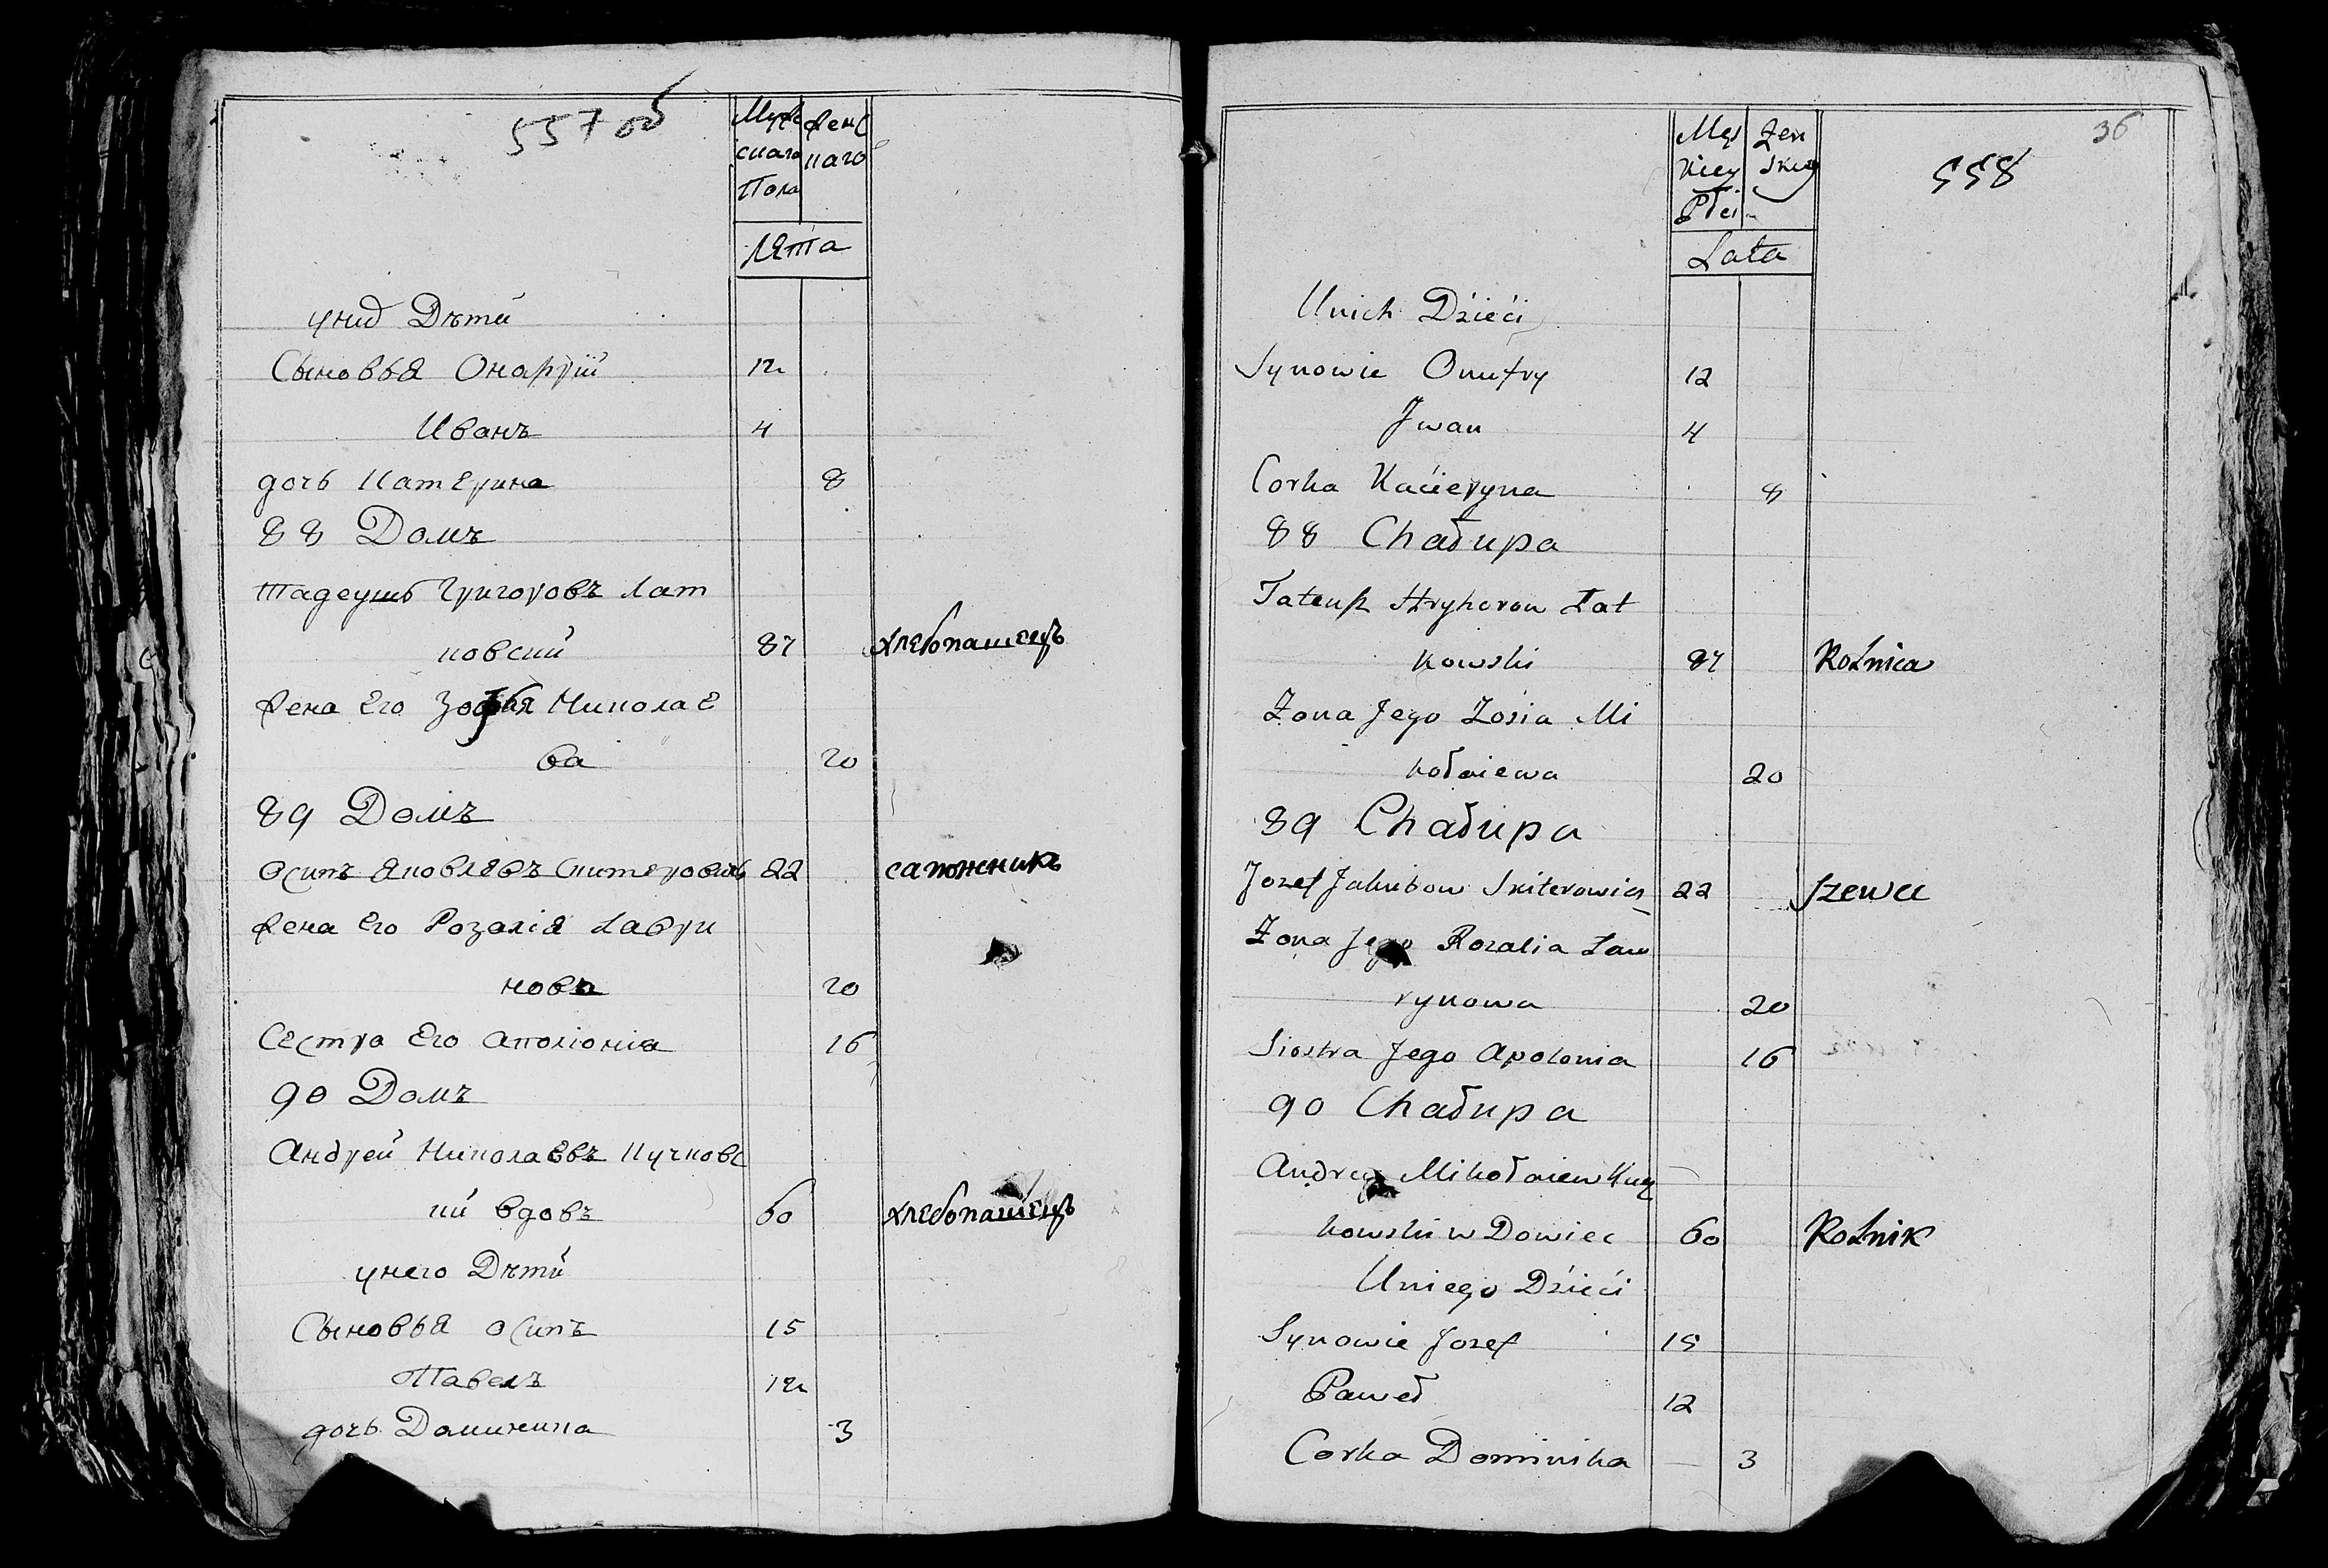 557 об
Мужескаго Пола
Женскаго
Лета
у нид Дѣти
Сыновья Онафрій
12
Иванъ
4
дочь Катерина
8
88 Домъ
Тадеушъ Григоровъ Лат
ковский
87
хлебопашецъ
жена Его Зофья Николае
ва
20
89 Домъ
Осипъ Яковлевъ Скитеровичъ
22
сапожникъ
жена Его Розалія Лаври
нова
20
Сестра Его Аполіонія
16
90 Домъ
Андрей Николаевъ Кучковс
кий вдовъ
60
хлебопашецъ
у него Дѣти
Сыновья Осипъ
15
Павелъ
12
дочь Доминика
3
36
558
Męskiey Płci
Żenskiey
Lata
Unich Dźieći
Synowie Onufry
12
Jwan
4
Corka Kaćieryna
8
88 Chałupa
Tateusz Hryhorow Łat
kowski
87
Rolnica
Żona Jego Zosia Mi
kołaiewa
20
89 Chałupa
Jozef Jakubow Skiterowicz
22
szewc
Żona Jego Rozalia Ław
rynowa
20
Siostra Jego Apolonia
16
90 Chałupa
Andrey Mikołaiew Kucz
kowski w Dowiec
60
Rolnik
Uniego Dźieći
Synowie Jozef
15
Paweł
12
Corka Dominika
3